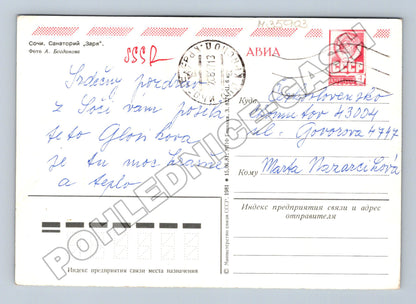 Сочи. Санаторий „Заря".
Фото А. Богданова
SSSR
АВИА
СССР
Srdečný pozdrav
z Soči vám posíla
teta
je tu moc krásně
a teplo
Куда
Chomutov 43004
ul. Govorova 4747
Кому
Marta Nazarčíková
Индекс предприятия связи и адрес
отправителя
Индекс предприятия связи места назначения
© Министерство связи СССР. 1981
POHLEDNICE-CASH